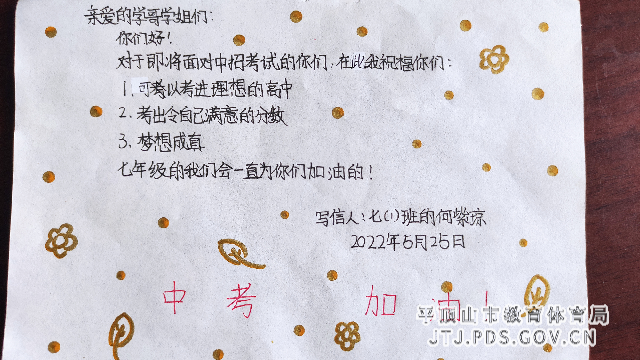 亲爱的学哥学姐们:
你们好!
对于即将面对中招考试的你们,在此我祝福你们:
1.可考以考进理想的高中
2.考出令自己满意的分数
3.梦想成真
七年级的我们会一直为你们加油的!
写信人:七(1)班的何紫琼
2022年5月25日
中考 加油!
平顶山市教育体育局
JTJ.PDS.GOV.CN